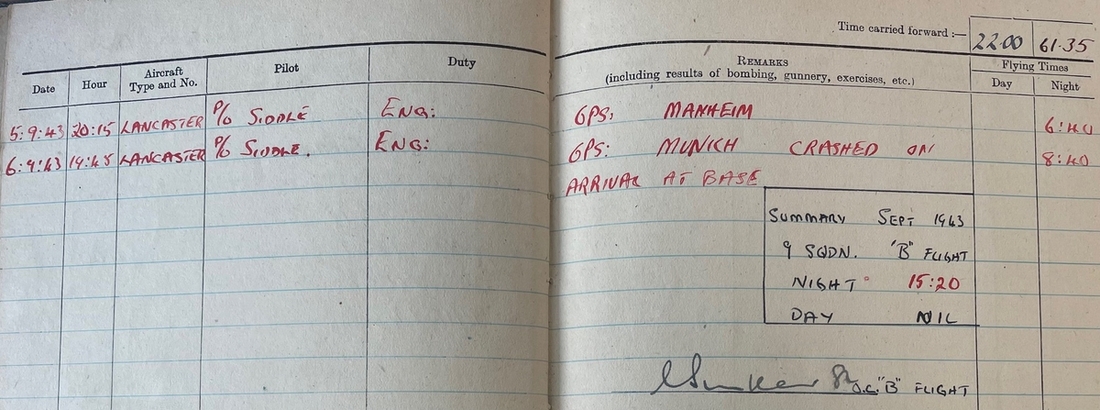 Time carried forward :— 22.00 61.35
Date Hour Aircraft Type and No. Pilot Duty REMARKS (including results of bombing, gunnery, exercises, etc.) Flying Times Day Night
5:9:43 20:15 LANCASTER P/O SIDDLE ENG: OPS, MANHEIM 6:40
6:9:43 19:45 LANCASTER P/O SIDDLE. ENG: OPS: MUNICH CRASHED ON 8:40
ARRIVAL AT BASE
SUMMARY SEPT 1943
9 SQDN. "B" FLIGHT
NIGHT 15:20
DAY NIL
O.C. "B" FLIGHT